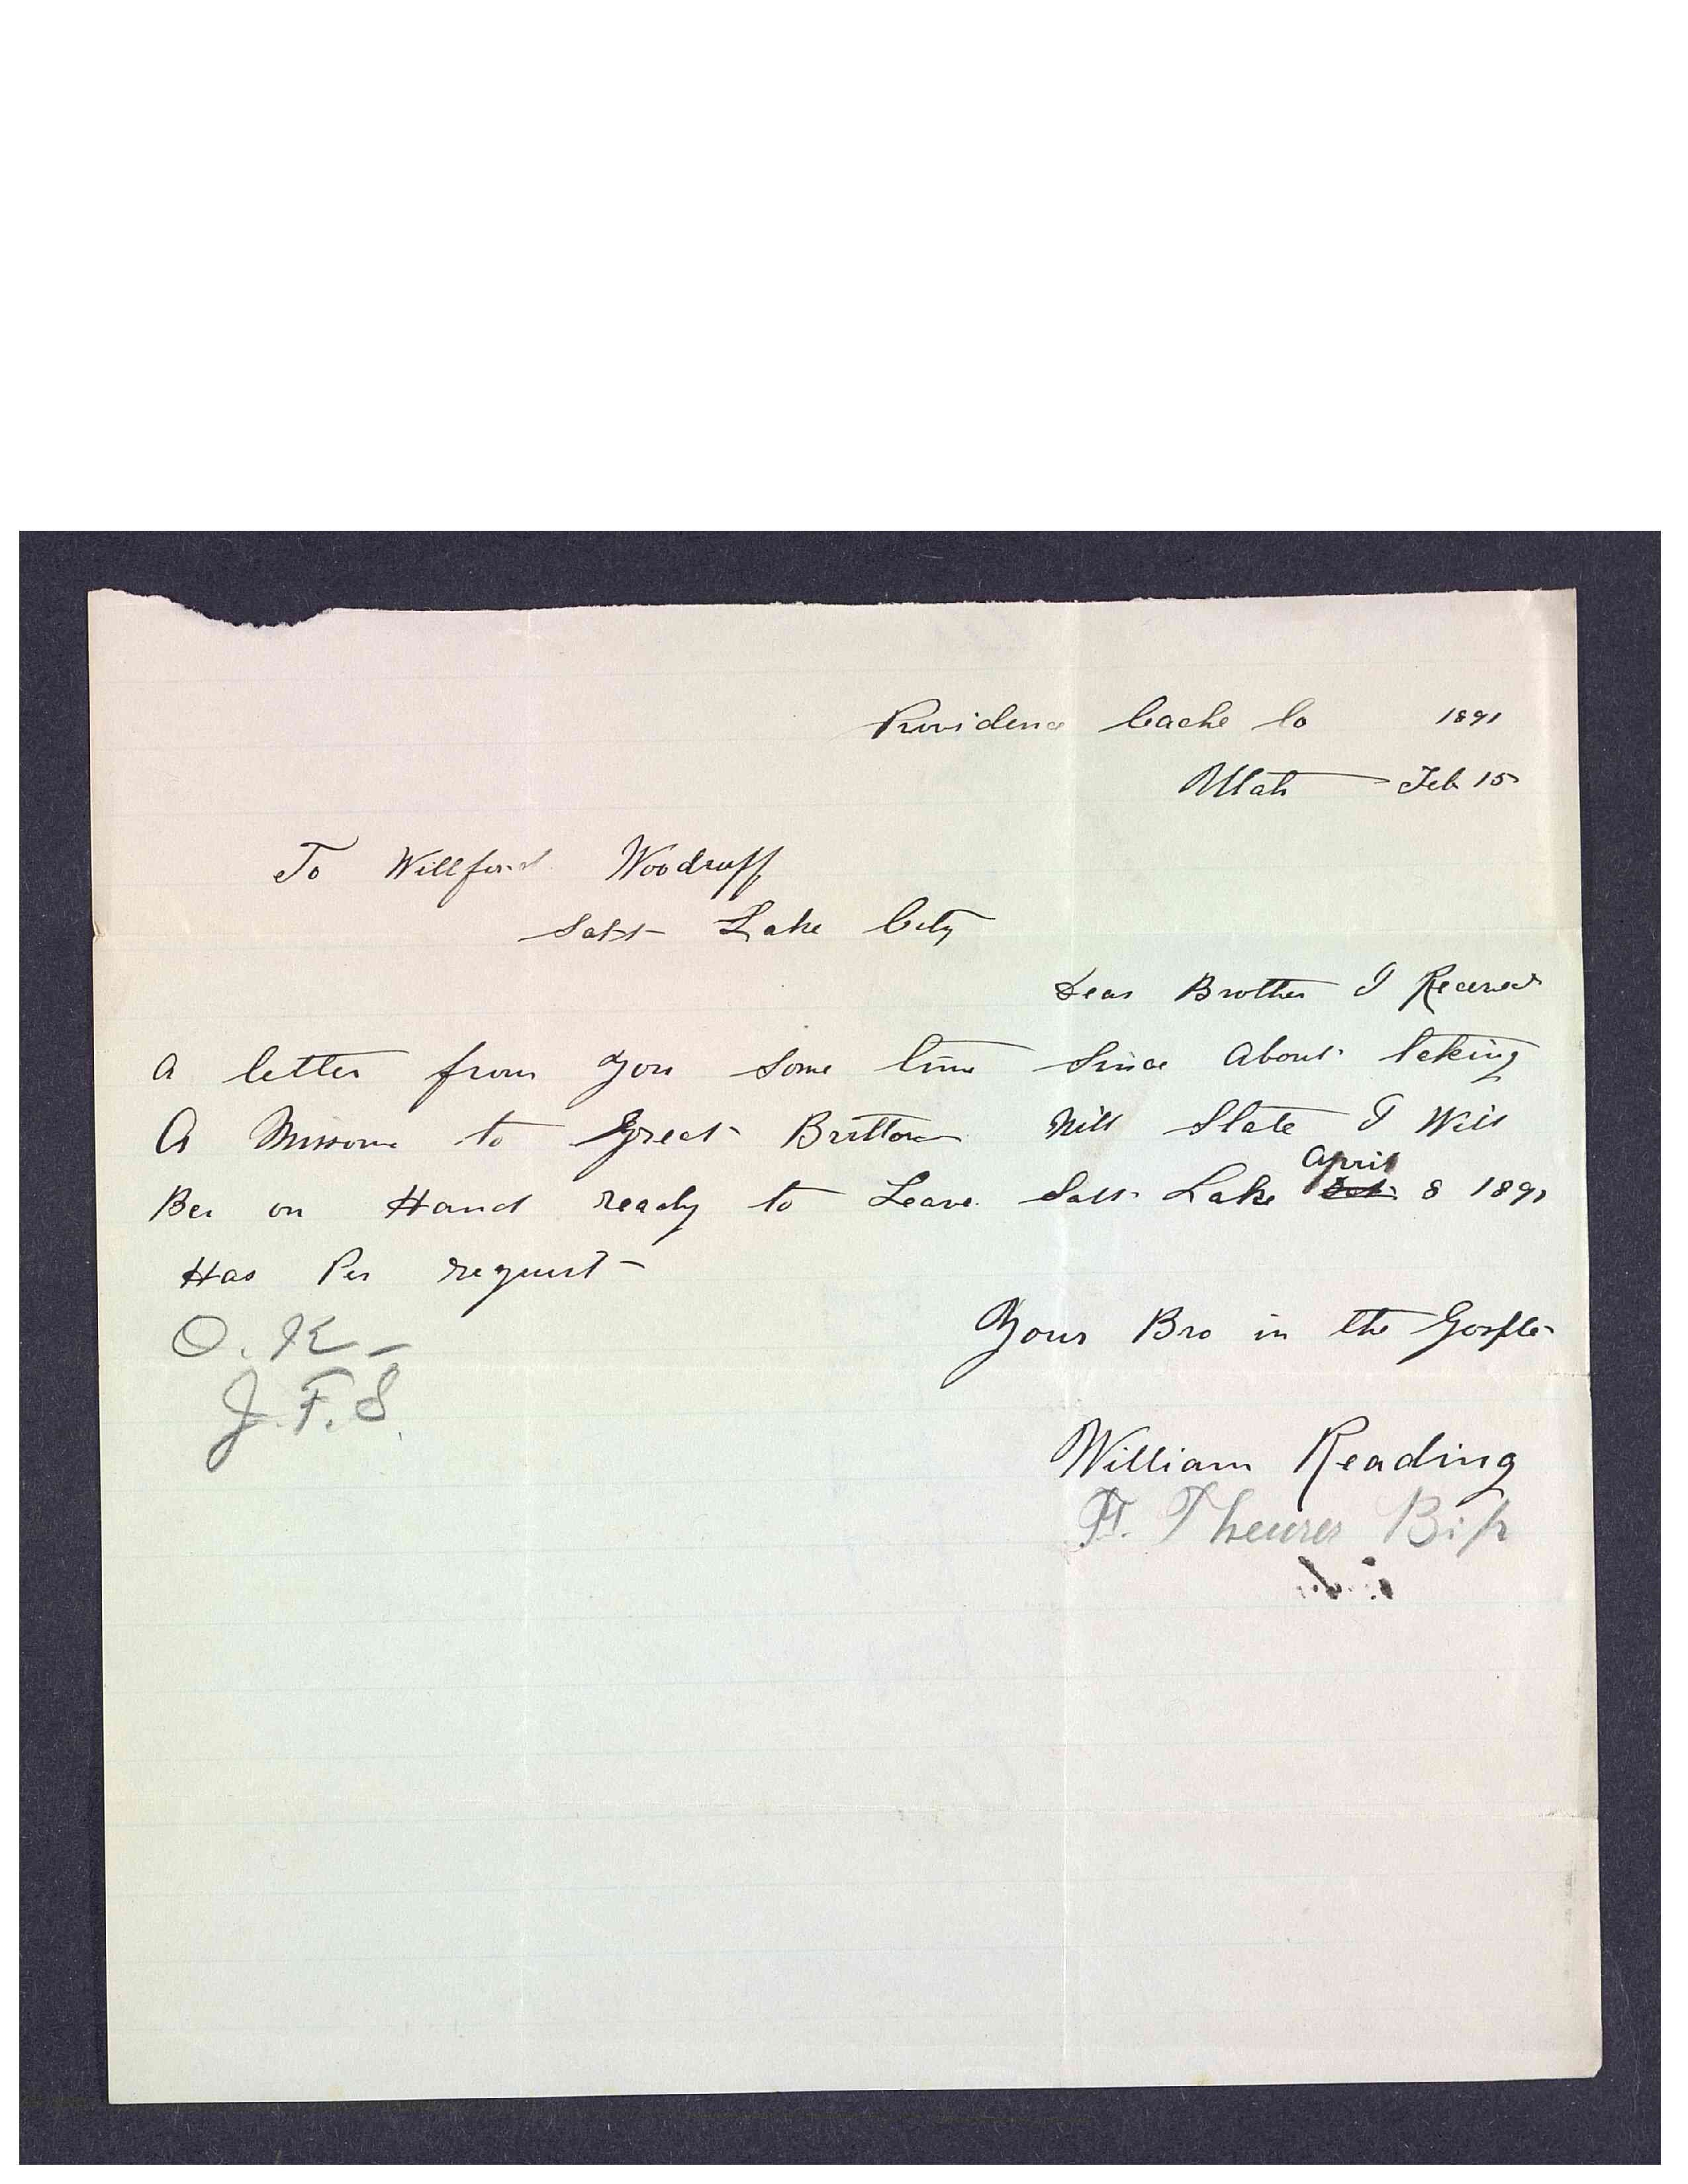 Providence Cache Co 1891
Utah Feb 15
To Willford Woodruff
Salt Lake City
Dear Brother I Received
A letter from you Some time Since About taking
A Missione to Great Brittan Will State I Will
Bee on Hand ready to Leave Salt Lake April 8 1891
Has Per request
O. K.
J. F. S.
Your Bro in the Gosple
William Reading
F. Theurer Bip